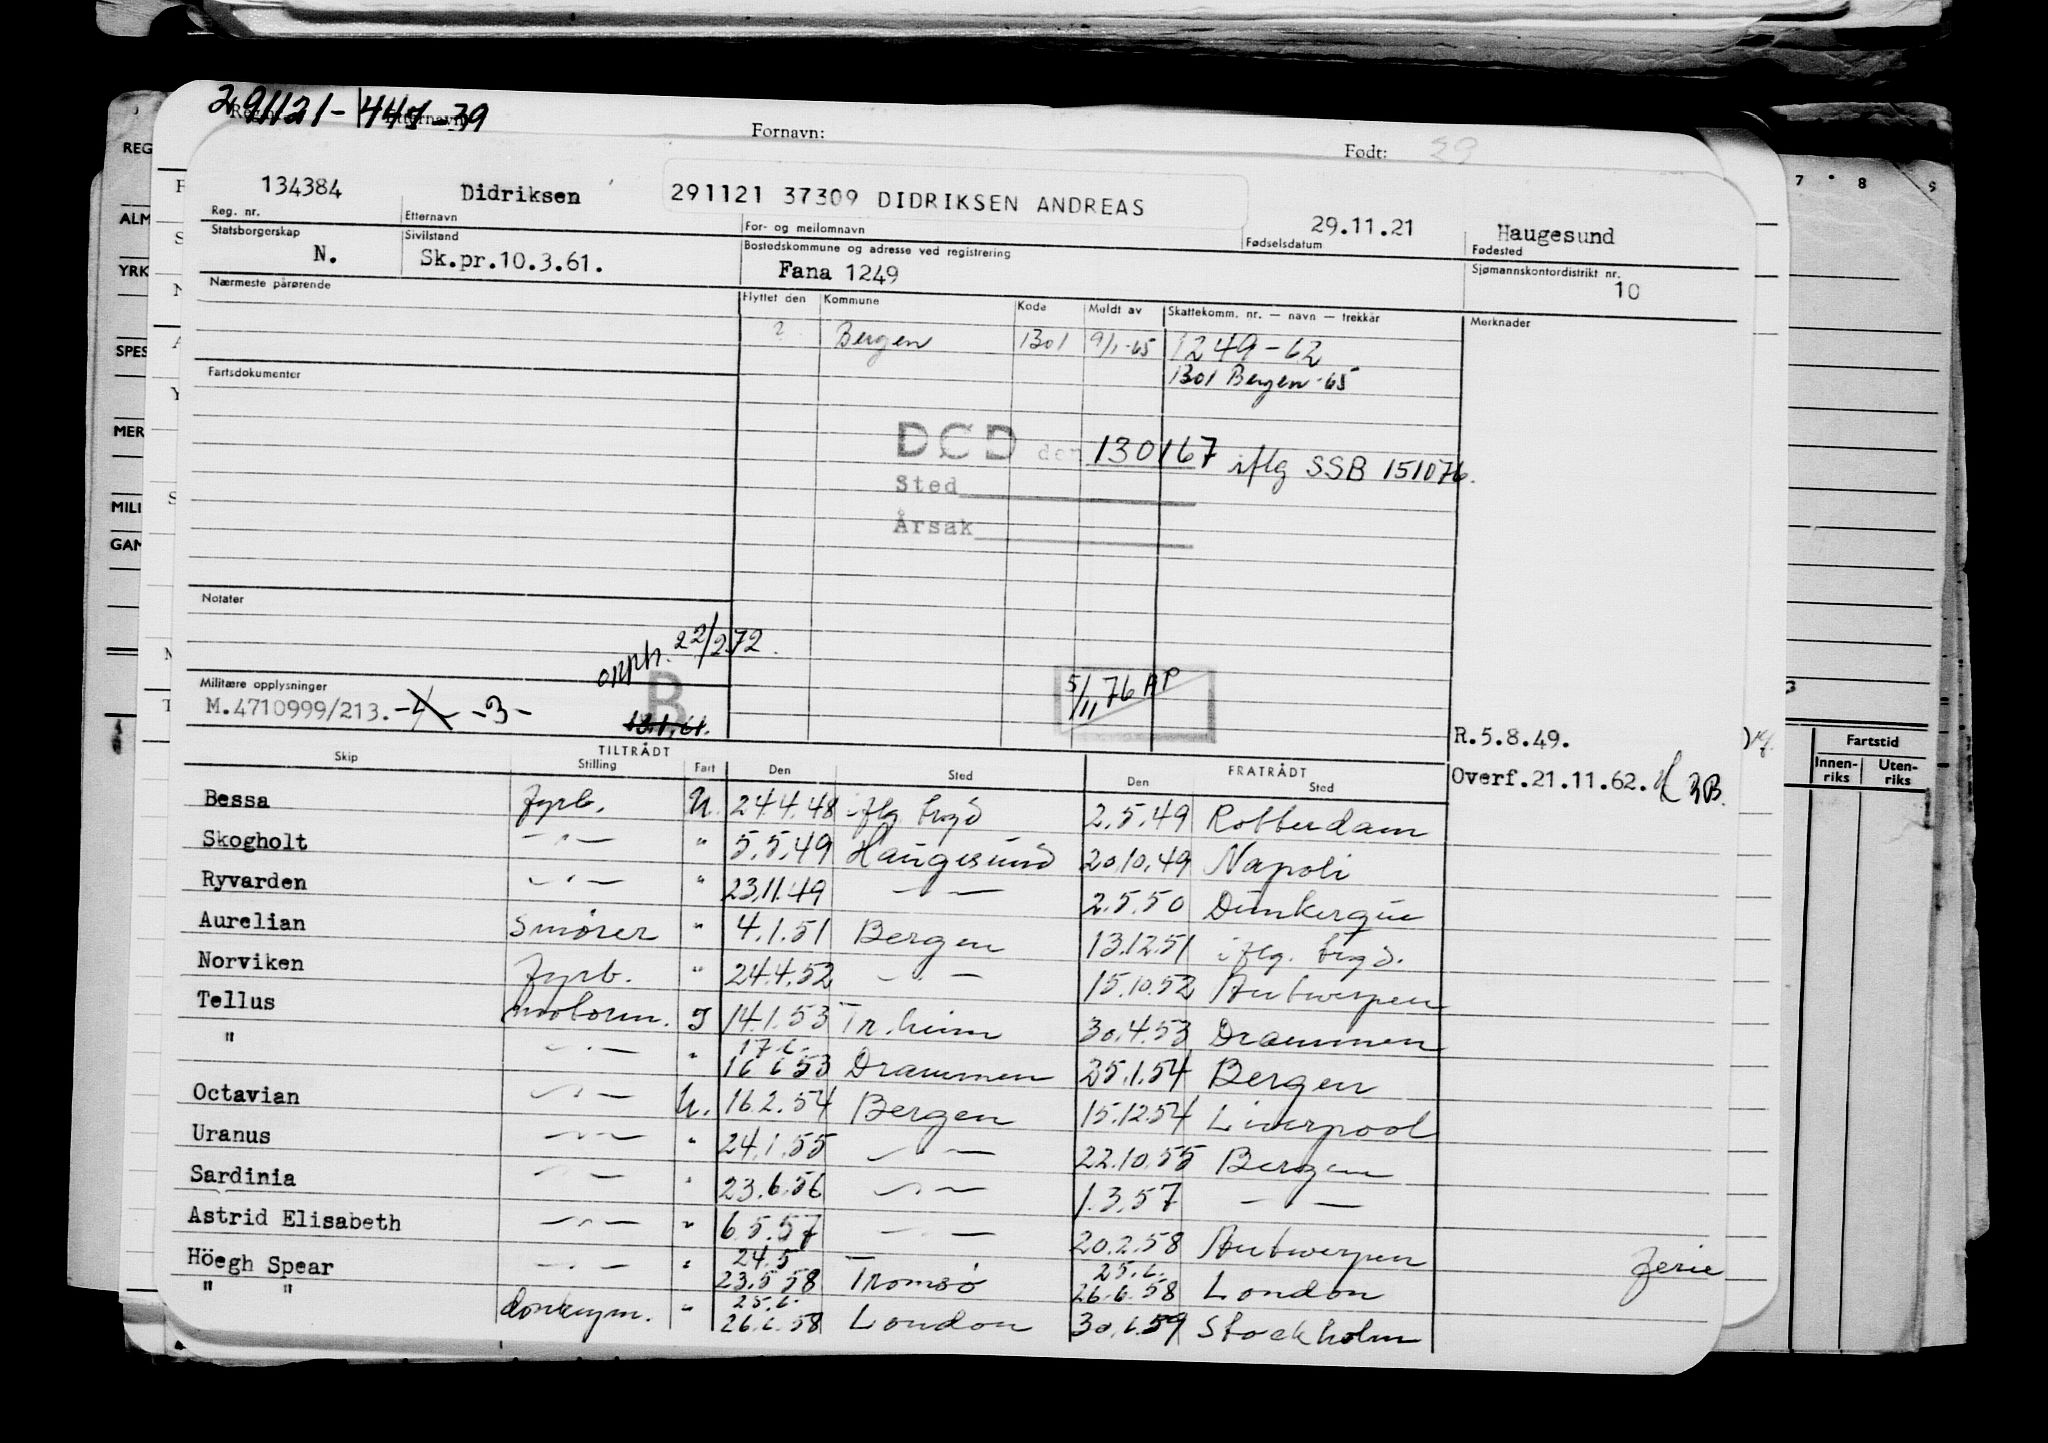 291121-44
Fornavn:
Født:
REG
134384 Didriksen 291121 37309 DIDRIKSEN ANDREAS 29.11.21 Haugesund
Reg. nr. Etternavn For- og mellomnavn Fødselsdatum Fødested
Statsborgerskap Sivilstand Bostedskommune og adresse ved registrering Sjømannskontordistrikt nr.
N. Sk.pr.10.3.61. Fana 1249 10
Nærmeste pårørende Flyttet den Kommune Kode Meldt av Skattekomm. nr. — navn — trekkår Merknader
? Bergen 1301 9/1-65 1249-62
1301 Bergen-65
Fartsdokumenter
DØD den 130167 iflg SSB 151076.
Sted
Årsak
Notater
opph. 22/2 72.
Militære opplysninger
B
5/11 76 AP
M.4710999/213. -4- -3-
R.5.8.49.
Overf.21.11.62. 3B.
TILTRÅDT FRATRÅDT
Skip Stilling Fart Den Sted Den Sted
Bessa fyrb. U. 24.4.48 iflg byd 2.5.49 Rotterdam
Skogholt — " — " 5.5.49 Haugesund 20.10.49 Napoli
Ryvarden — " — " 23.11.49 — " — 2.5.50 Dunkerque
Aurelian Smører " 4.1.51 Bergen 13.12.51 iflg.
Norviken fyrb. " 24.4.52 — " — 15.10.52 Antwerpen
Tellus motorm. I 14.1.53 Tr.heim 30.4.53 Drammen
" — " — " 17.6. 16 6 53 Drammen 25.1.54 Bergen
Octavian — " — U. 16.2.54 Bergen 15.12.54 Liverpool
Uranus — " — " 24.1.55 — " — 22.10.55 Bergen
Sardinia — " — " 23.6.56 — " — 1.3.57 — " —
Astrid Elisabeth — " — " 6.5.57 — " — 20.2.58 Antwerpen
Höegh Spear — " — " 24.5 23.5 58 Tromsø 25.6. 26.6.58 London
" " donkeym. " 25.6. 26.6.58 London 30.6.59 Stockholm
Ferie
7 8 9
ALM
YRK
SPES
MER
MILI
GAN
Fartstid
Innen-riks Uten-riks